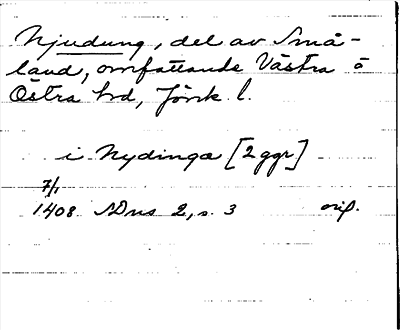 Njudung, del av Små-
land, omfattande Västra o
Östra hd, Jönk l.
i Nydinga [2 ggr]
7/1
1408 SDns 2, s. 3 orig.